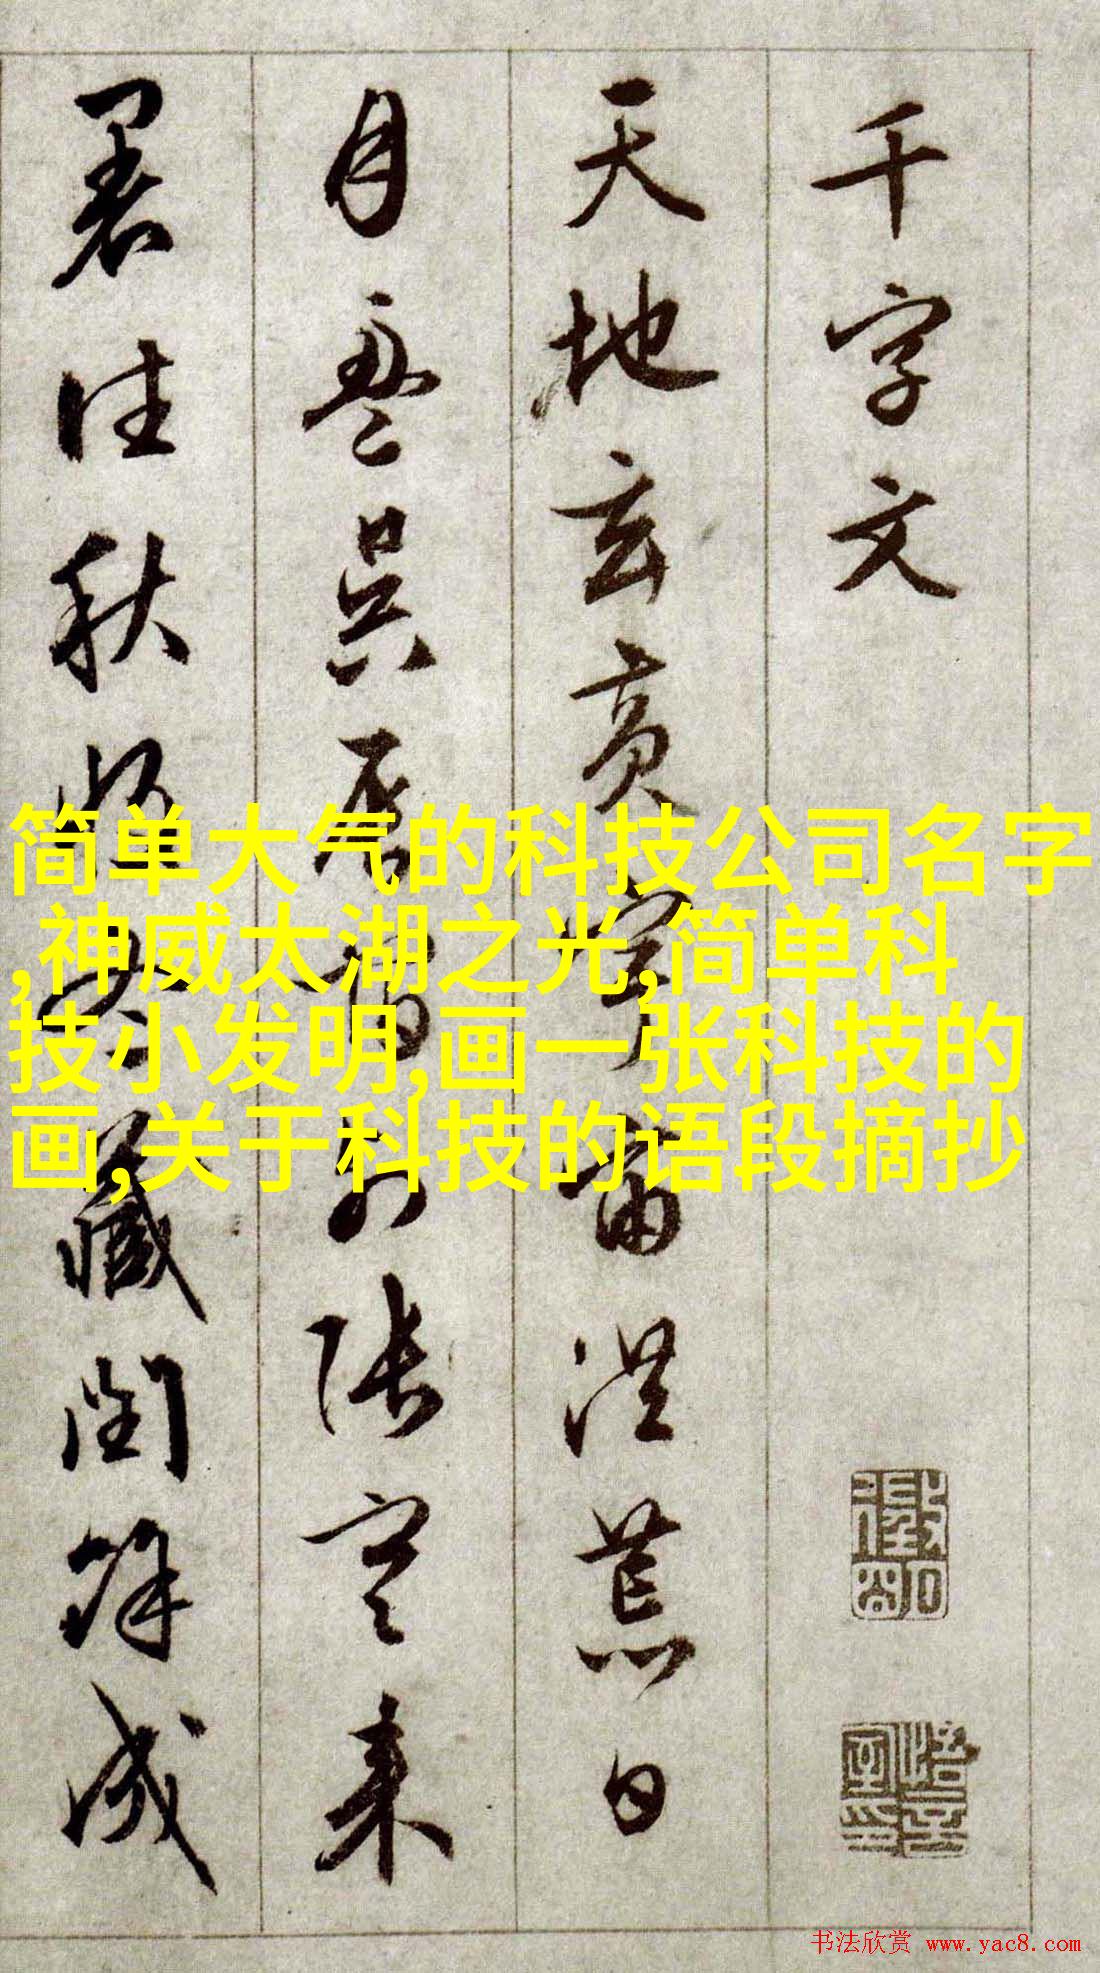 千字文
天地玄黄宇宙洪荒日
月盈昃辰宿列張寒来
暑往秋收冬藏閏餘成
简单大气的科技公司名字
,神威太湖之光,简单科
技小发明,画一张科技的
画,关于科技的语段摘抄
书法欣赏 www.yac8.com